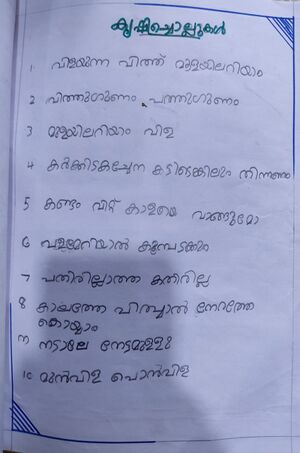 കൃഷിച്ചൊല്ലുകൾ
1 വിളയുന്ന വിത്ത് മുളയിലറിയാം
2 വിത്തുഗുണം പത്തുഗുണം
3 മുളയിലറിയാം വിള
4 കർക്കിടകച്ചേന കട്ടിട്ടെങ്കിലും തിന്നണം
5 കണ്ടം വിറ്റ് കാളയെ വാങ്ങുമോ
6 വളമേറിയാൽ കൂമ്പടക്കും
7 പതിരില്ലാത്ത കതിരില്ല
8 കാലത്തേ വിതച്ചാൽ നേരത്തേ
കൊയ്യാം
9 നടാലേ നേട്ടമുള്ളു
10 മുൻവിള പൊൻവിള